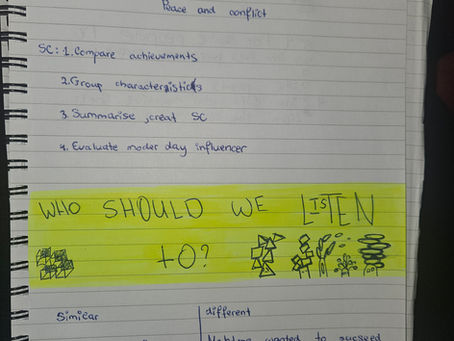 Peace and conflict
SC: 1. Compare achievements
2. Group characteristics
3. Summarise, creat SC
4. Evaluate moder day influencer
WHO SHOULD WE LISTEN
TO?
Similar different
wanted to succeed